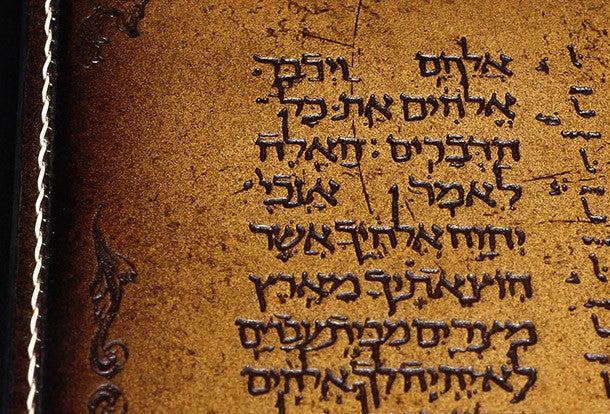 אֲלֵהֶם וַיְדַבֵּר
אֱלֹהִים אֵת כָּל
הַדְּבָרִים הָאֵלֶּה
לֵאמֹר אָנֹכִי
יְהוָה אֱלֹהֶיךָ אֲשֶׁר
הוֹצֵאתִיךָ מֵאֶרֶץ
מִצְרַיִם מִבֵּית עֲבָדִים
לֹא יִהְיֶה לְךָ אֱלֹהִים